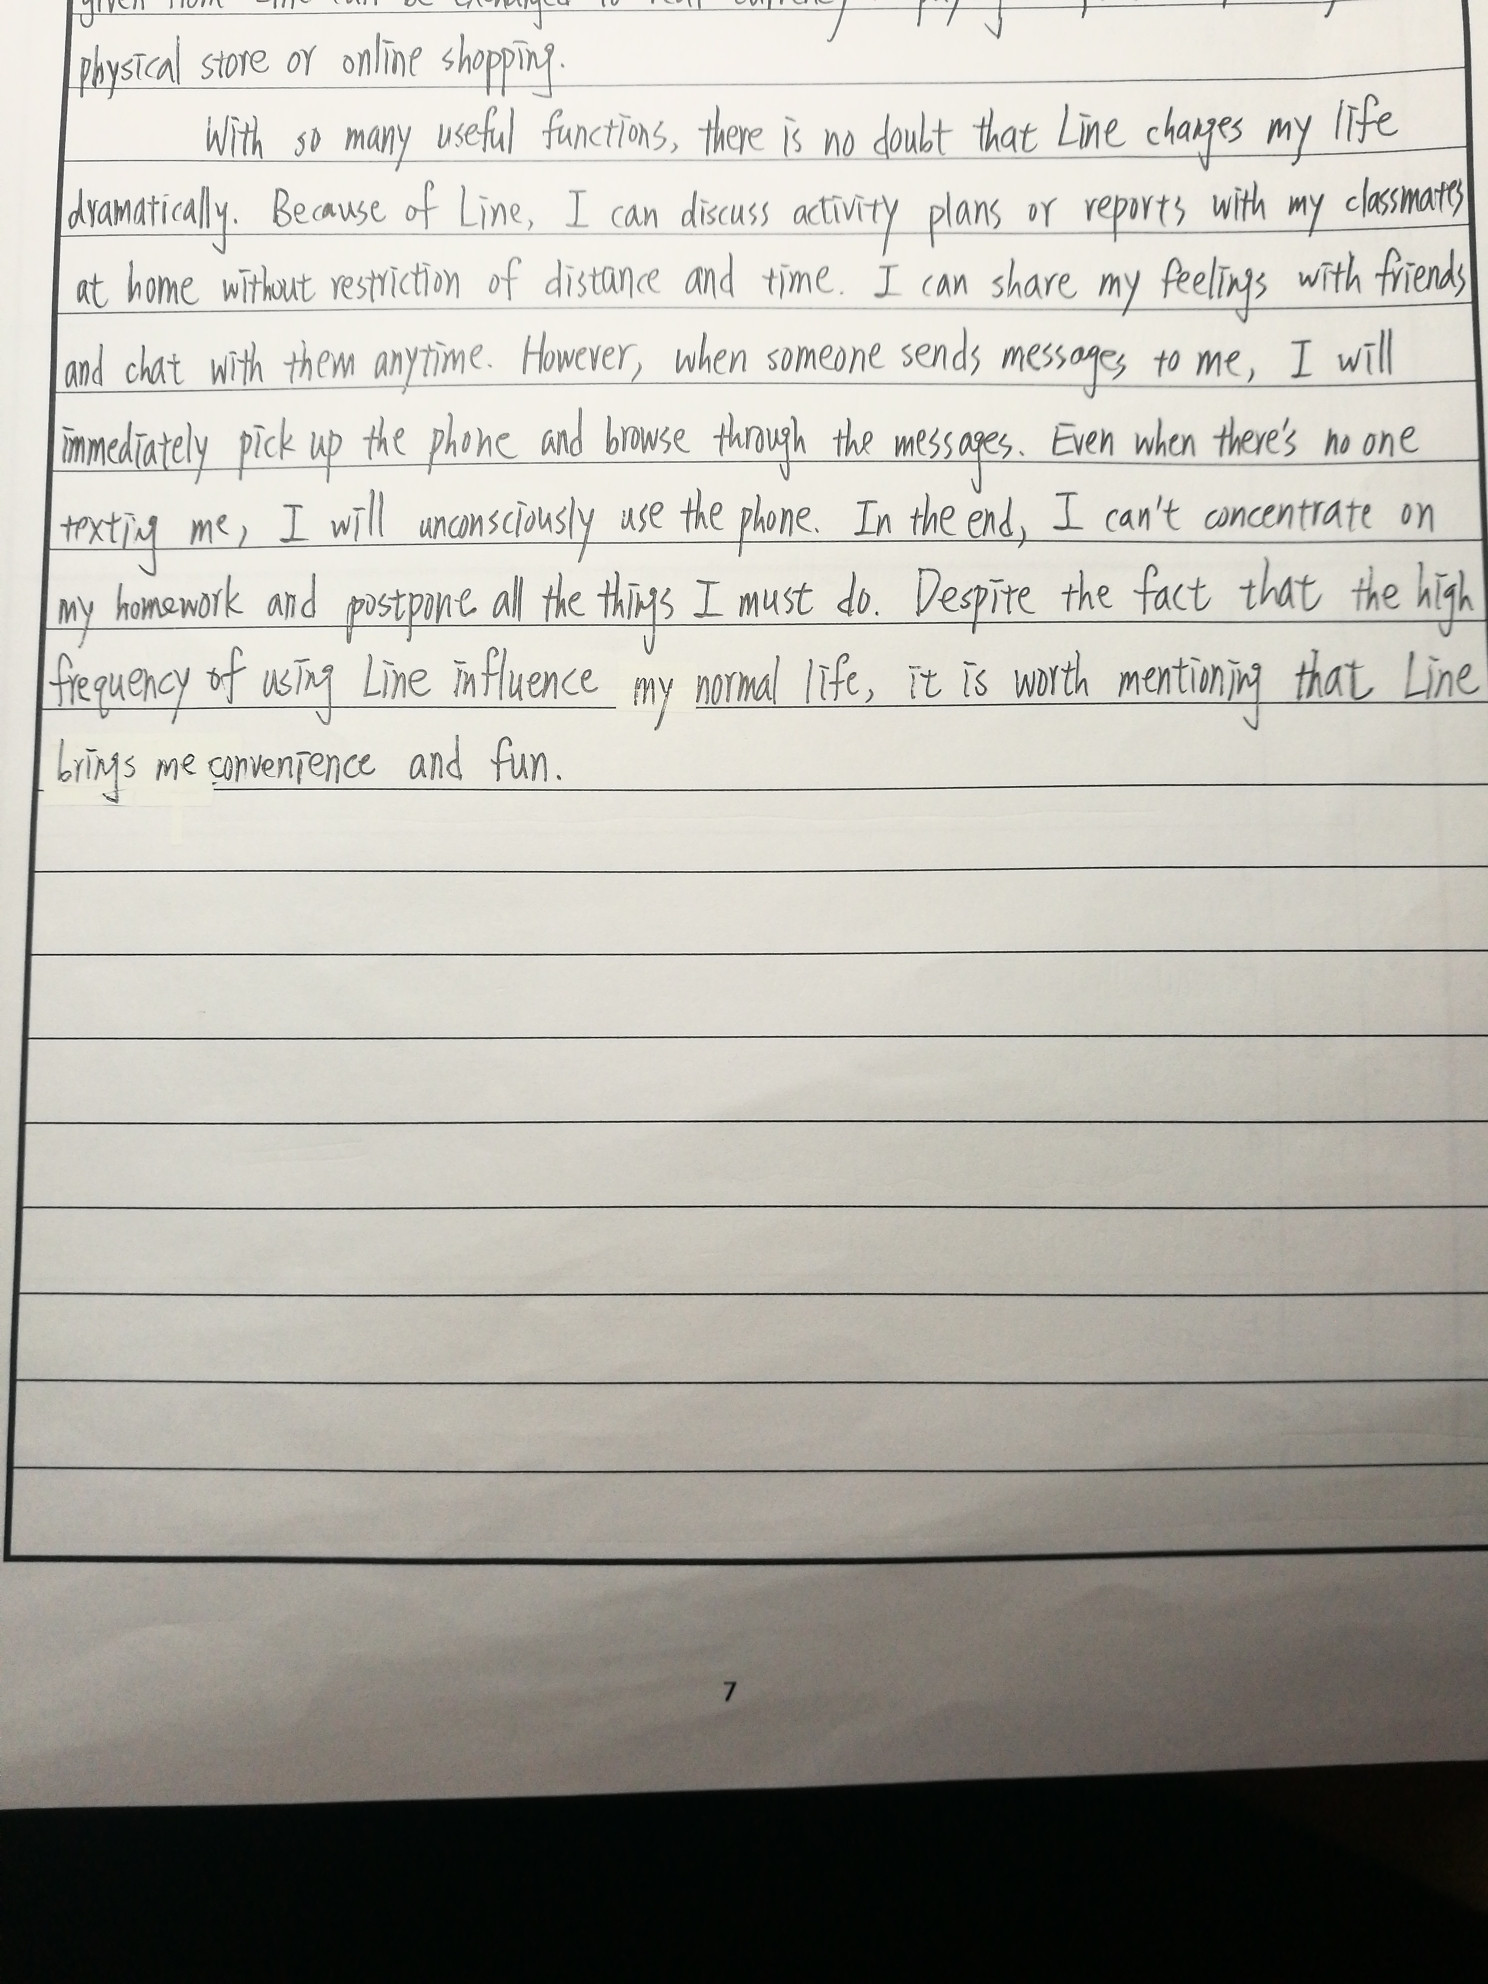 given from Line can be exchanged to real currency
physical store or online shopping.
With so many useful functions, there is no doubt that Line changes my life
dramatically. Because of Line, I can discuss activity plans or reports with my classmates
at home without restriction of distance and time. I can share my feelings with friends
and chat with them anytime. However, when someone sends messages to me, I will
immediately pick up the phone and browse through the messages. Even when there's no one
texting me, I will unconsciously use the phone. In the end, I can't concentrate on
my homework and postpone all the things I must do. Despite the fact that the high
frequency of using Line influence my normal life, it is worth mentioning that Line
brings me convenience and fun.
7